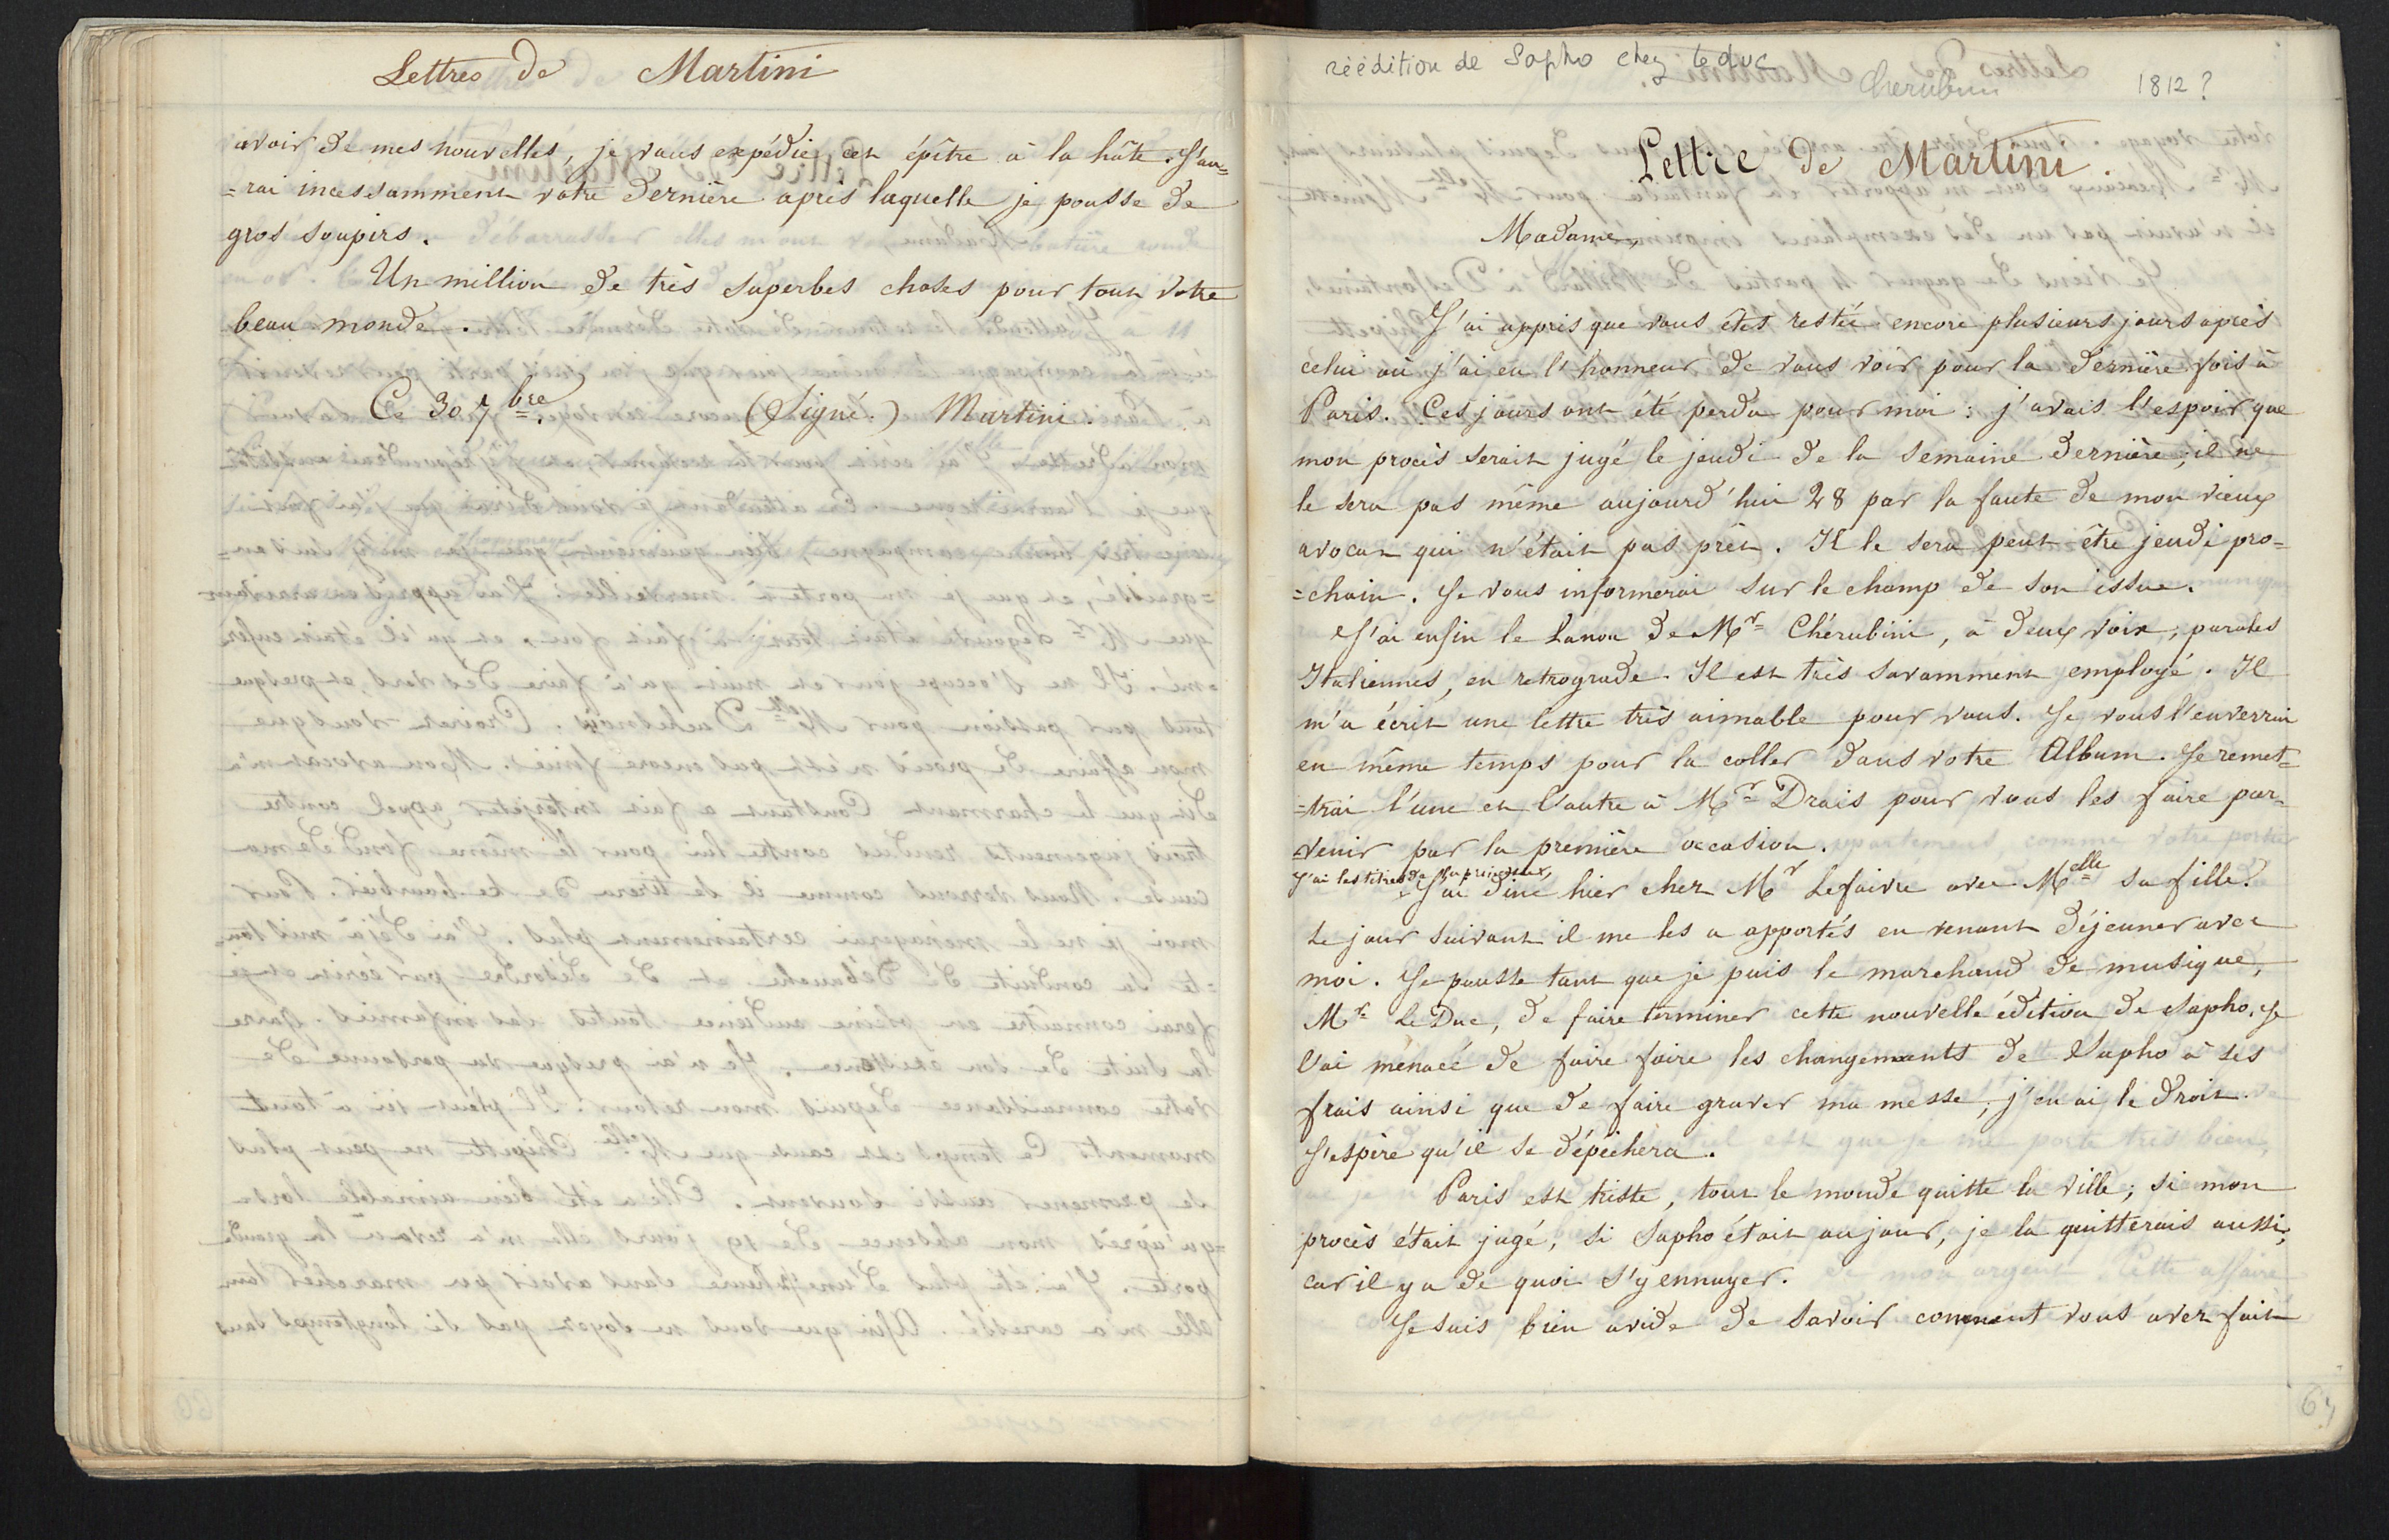 Lettres de Martini
avoir de mes nouvelles, je vous expédie cet épître à la hâte. J'au=
=rai incessamment votre dernière après laquelle je pousse de
gros soupirs.
Un million de très superbes choses pour tout votre
beau monde.
Ce 30 7bre. (Signé.) Martini.
réédition de Sapho chez Leduc
Cherubini
1812?
Lettre de Martini.
Madame,
J'ai appris que vous êtes restée encore plusieurs jours après
celui où j'ai eu l'honneur de vous voir pour la dernière fois à
Paris. Ces jours ont été perdu pour moi : j'avais l'espoir que
mon procès serait jugé le jeudi de la semaine dernière; il ne
le sera pas même aujourd'hui 28 par la faute de mon vieux
avocat qui n'était pas prêt. Il le sera peut être jeudi pro=
=chain. Je vous informerai sur le champ de son issue.
J'ai enfin le Canon de Mr Chérubini, à deux voix; paroles
Italiennes, en retrograde. Il est très savamment employé. Il
m'a écrit une lettre très aimable pour vous. Je vous l'enverrai
en même temps pour la coller dans votre Album. Je remet=
=trai l'une et l'autre à Mr Drais pour vous les faire par=
=venir par la première occasion.
J'ai les titres de la princesse,
J'ai diné hier chez Mr Lefaivre avec Melle sa fille.
Le jour suivant il me les a apportés en venant déjeuner avec
moi. Je pousse tant que je puis le marchand de musique,
Mr Le Duc, de faire terminer cette nouvelle édition de Sapho. Je
l'ai menacé de faire faire les changements de Sapho à ses
frais ainsi que de faire graver ma messe, j'en ai le droit.
J'espère qu'il se dépêchera.
Paris est triste, tout le monde quitte la ville; si mon
procès était jugé, si Sapho était au jour, je la quitterais aussi,
car il y a de quoi s'y ennuyer.
Je suis bien avide de savoir comment vous avez fait